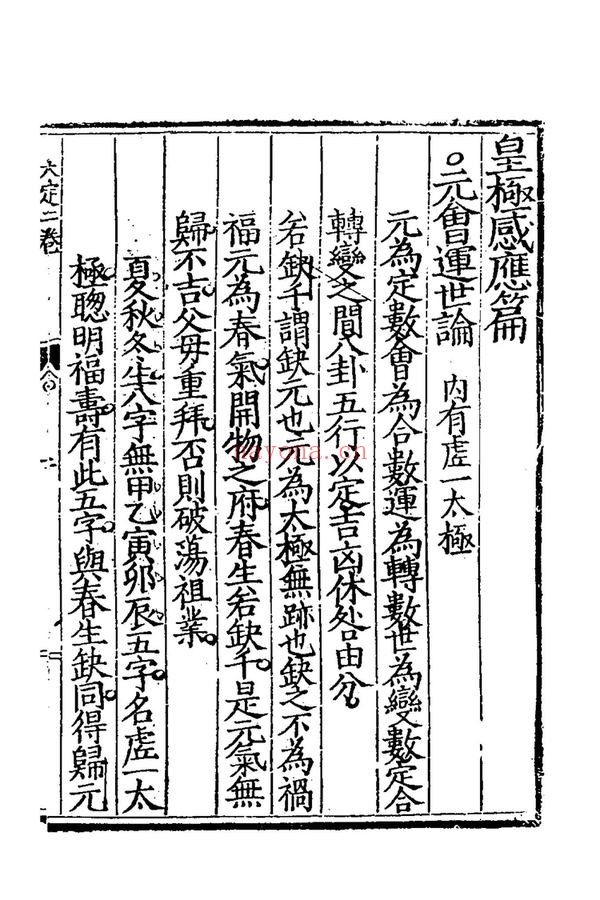 皇極感應篇
○元會運世論 內有虛一太極
元為定數會為合數運為轉數世為變數定合
轉變之間八卦五行以定吉凶休咎由分
若缺千謂缺元也元為太極無跡也缺之不為禍
福元為春氣開物之府春生若缺千是元氣無
歸不吉父母重拜否則破蕩祖業
夏秋冬生八字無甲乙寅卯辰五字名虛一太
極聰明福壽有此五字與春生缺同得歸元
六定二卷
nayona.cn